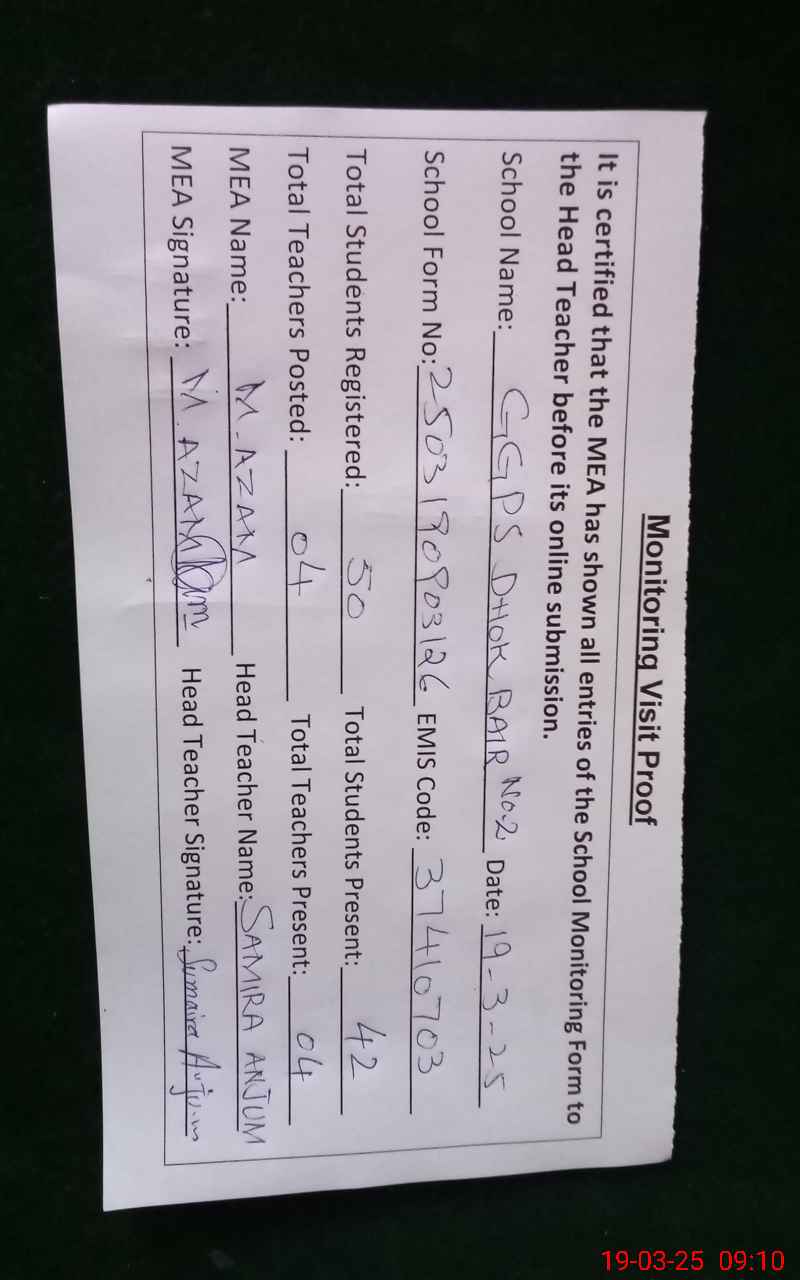 Monitoring Visit Proof
It is certified that the MEA has shown all entries of the School Monitoring Form to
the Head Teacher before its online submission.
School Name: GGPS DHOK BAIR No.2 Date: 19-3-25
School Form No: 250319090903126 EMIS Code: 37410703
Total Students Registered: 50 Total Students Present: 42
Total Teachers Posted: 04 Total Teachers Present: 04
MEA Name: M. AZAM Head Teacher Name: SAMIRA ANJUM
MEA Signature: M. AZAM Head Teacher Signature: Sumaira Anjum
19-03-25 09:10